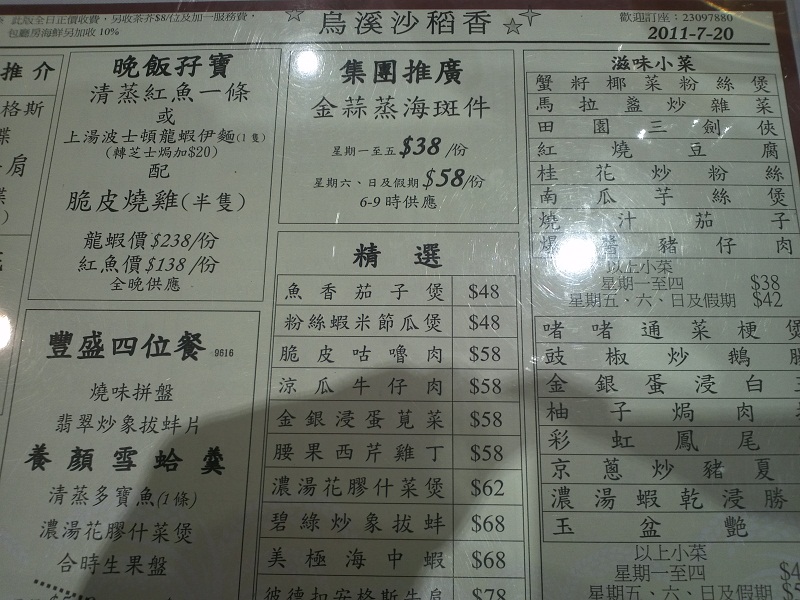 此版全日正價收費，另收茶芥$8/位及加一服務費，
包廳房海鮮另加收 10%
☆ 烏溪沙稻香 ☆
歡迎訂座：23097880
2011-7-20
推介
格斯
肩
晚飯孖寶
清蒸紅魚一條
或
上湯波士頓龍蝦伊麵(1隻)
(轉芝士焗加$20)
配
脆皮燒雞(半隻)
龍蝦價$238/份
紅魚價$138/份
全晚供應
豐盛四位餐 9616
燒味拼盤
翡翠炒象拔蚌片
養顏雪蛤羹
清蒸多寶魚(1條)
濃湯花膠什菜煲
合時生果盤
集團推廣
金蒜蒸海斑件
星期一至五$38/份
星期六、日及假期$58/份
6-9時供應
精選
魚香茄子煲 $48
粉絲蝦米節瓜煲 $48
脆皮咕嚕肉 $58
涼瓜牛仔肉 $58
金銀浸蛋莧菜 $58
腰果西芹雞丁 $58
濃湯花膠什菜煲 $62
碧綠炒象拔蚌 $68
美極海中蝦 $68
彼德扣安格斯牛肩 $78
滋味小菜
蟹籽椰菜粉絲煲
馬拉盞炒雜菜
田園三劍俠
紅燒豆腐
桂花炒粉絲
南瓜芋絲煲
燒汁茄子
爆醬豬仔肉
以上小菜
星期一至四 $38
星期五、六、日及假期 $42
啫啫通菜梗煲
豉椒炒鵝腸
金銀蛋浸白
柚子焗肉
彩虹鳳尾
京蔥炒豬夏
濃湯蝦乾浸勝
玉盆艷
以上小菜
星期一至四
星期五、六、日及假期